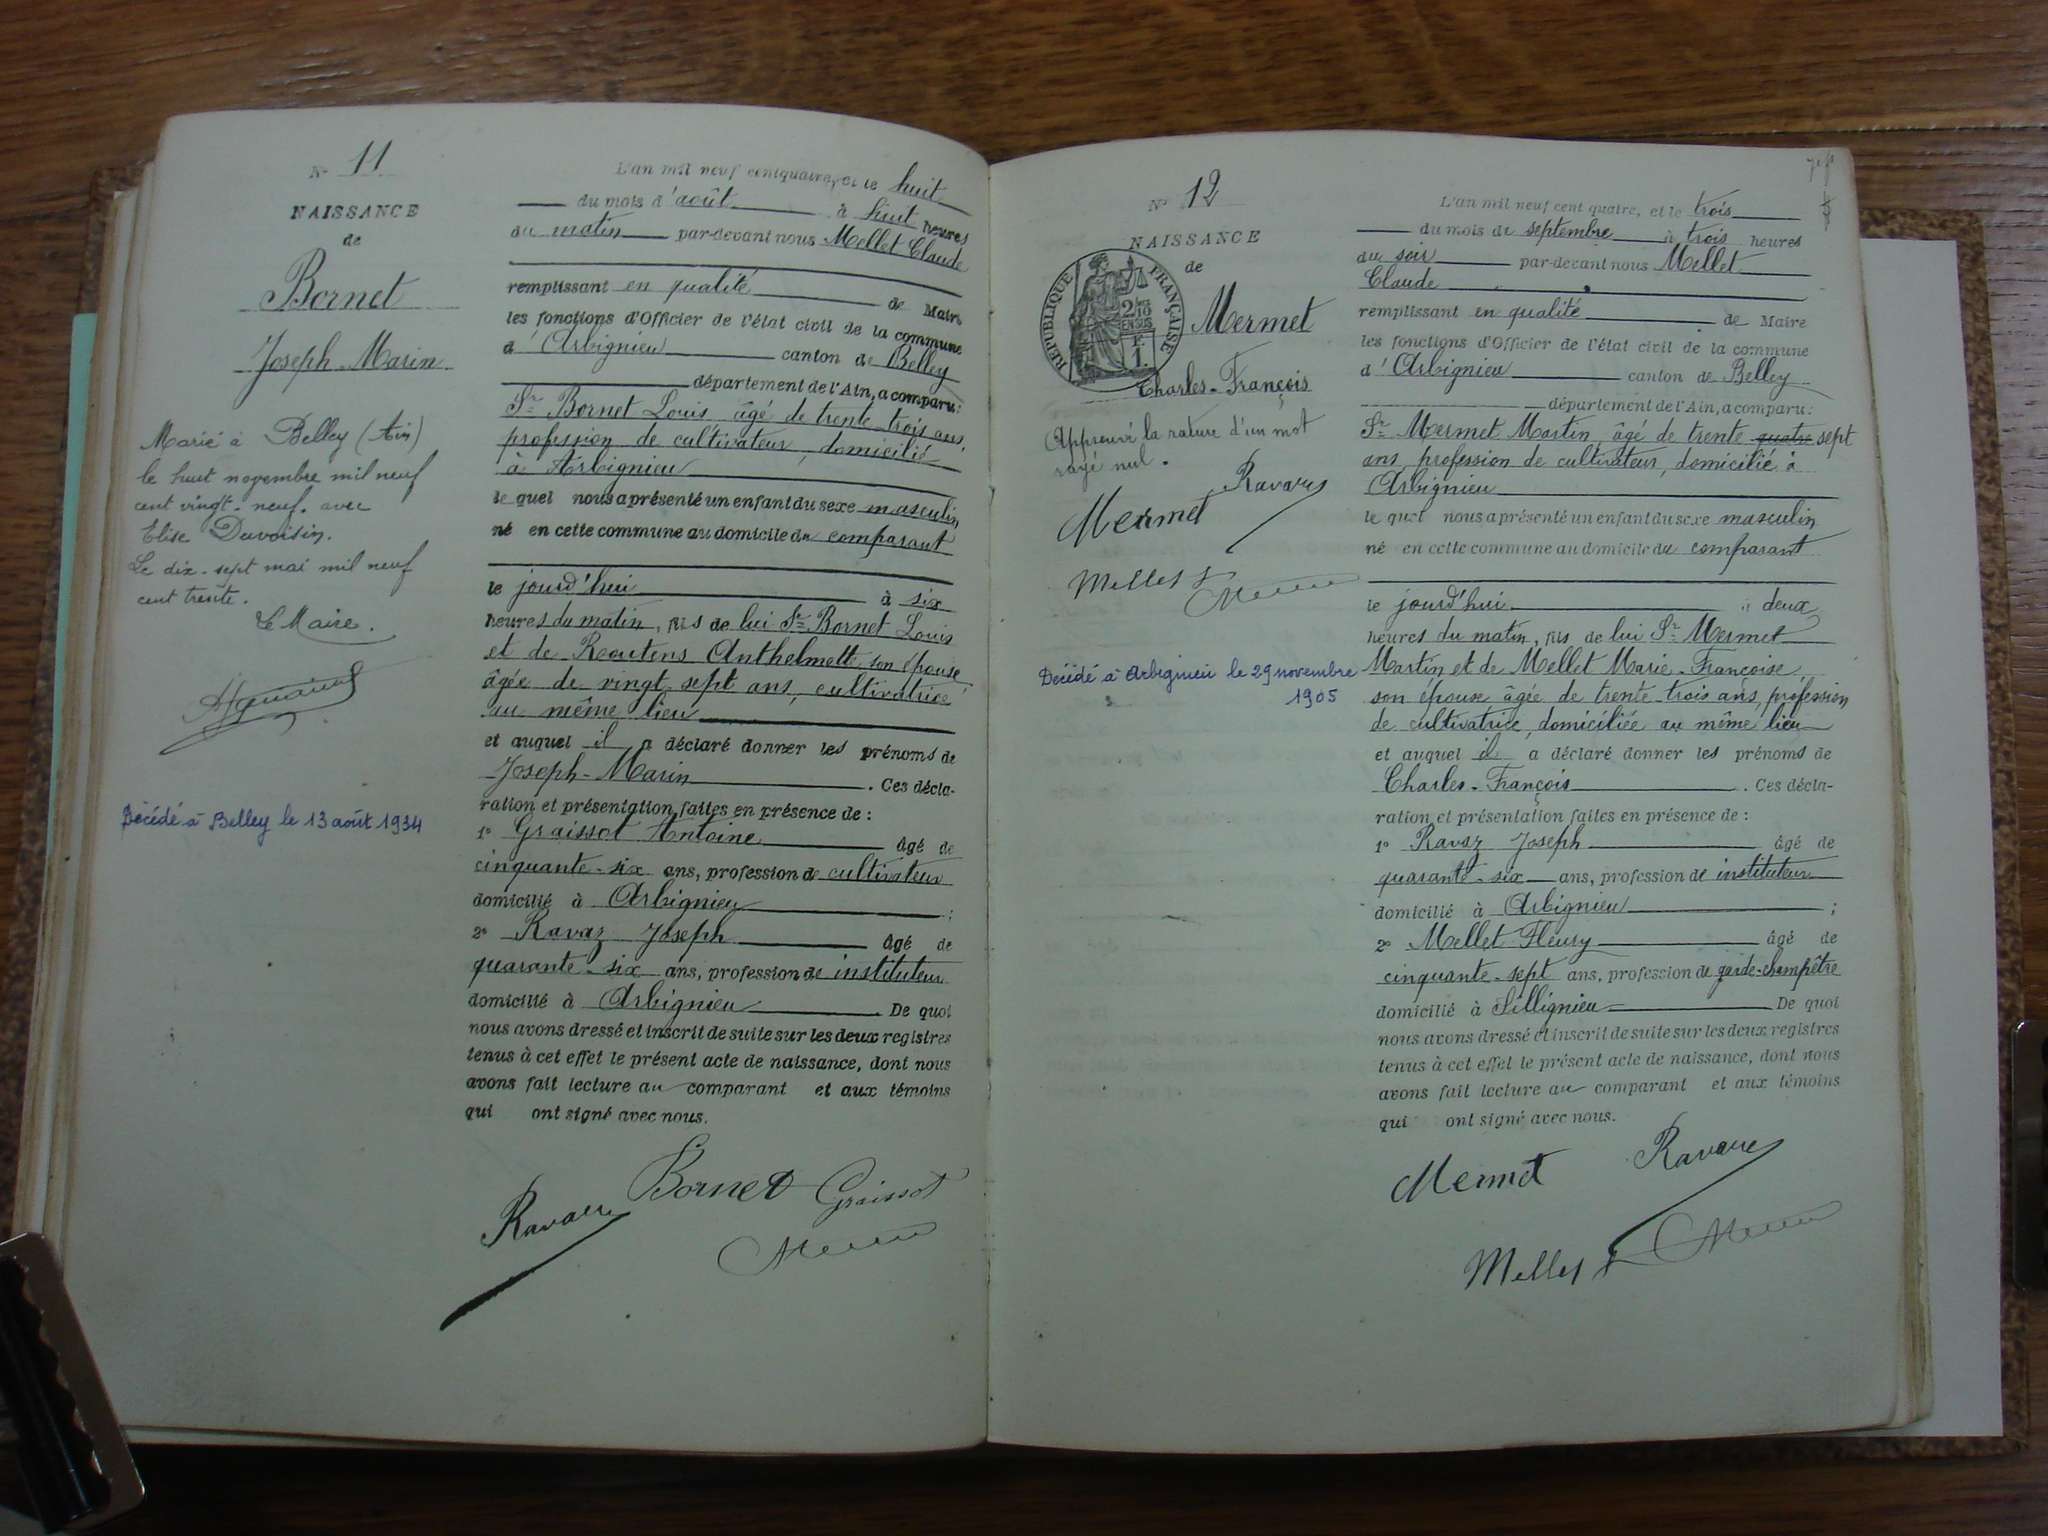 N° 11
NAISSANCE
de
Bornet
Joseph-Marin
Marié à Belley (Ain)
le huit novembre mil neuf
cent vingt-neuf. avec
Elise Duvoisin.
Le dix-sept mai mil neuf
cent trente.
Le Maire.
Décédé à Belley le 13 août 1934
L'an mil neuf cent quatre, et le huit
du mois d'août à huit heures
du matin par-devant nous Mellet Claude
remplissant en qualité de Maire
les fonctions d'Officier de l'état civil de la commune
d'Arbignieu canton de Belley
département de l'Ain, a comparu:
Sr Bornet Louis, âgé de trente-trois ans,
profession de cultivateur, domicilié
à Arbignieu
le quel nous a présenté un enfant du sexe masculin
né en cette commune au domicile du comparant
le jourd'hui à six
heures du matin, fils de lui Sr Bornet Louis
et de Anthelmette son épouse
âgée de vingt sept ans, cultivatrice
au même lieu
et auquel il a déclaré donner les prénoms de
Joseph-Marin. Ces décla-
ration et présentation faites en présence de :
1° Graissot Antoine âgé de
cinquante-six ans, profession de cultivateur
domicilié à Arbignieu ;
2° Ravaz Joseph âgé de
quarante-six ans, profession de instituteur
domicilié à Arbignieu. De quoi
nous avons dressé et inscrit de suite sur les deux registres
tenus à cet effet le présent acte de naissance, dont nous
avons fait lecture au comparant et aux témoins
qui ont signé avec nous.
Bornet Graissot
N° 12
NAISSANCE
de
RÉPUBLIQUE FRANÇAISE
2/10
EN SUS
1.
Mermet
Charles-François
Approuvé la rature d'un mot
rayé nul.
Mermet
Mellet
Décédé à Arbignieu le 29 novembre
1905
L'an mil neuf cent quatre, et le trois
du mois de septembre à trois heures
du soir par-devant nous Mellet
Claude
remplissant en qualité de Maire
les fonctions d'Officier de l'état civil de la commune
d'Arbignieu canton de Belley
département de l'Ain, a comparu:
Sr Mermet Martin, âgé de trente quatre sept
ans, profession de cultivateur, domicilié à
Arbignieu
le quel nous a présenté un enfant du sexe masculin
né en cette commune au domicile du comparant
le jourd'hui à deux
heures du matin, fils de lui Sr Mermet
Martin et de Mellet Marie-Françoise,
son épouse âgée de trente-trois ans, profession
de cultivatrice, domiciliée au même lieu
et auquel il a déclaré donner les prénoms de
Charles-François. Ces décla-
ration et présentation faites en présence de :
1° Ravaz Joseph âgé de
quarante-six ans, profession de instituteur
domicilié à Arbignieu ;
2° Mellet Fleury âgé de
cinquante-sept ans, profession de garde-champêtre
domicilié à Sillignieu De quoi
nous avons dressé et inscrit de suite sur les deux registres
tenus à cet effet le présent acte de naissance, dont nous
avons fait lecture au comparant et aux témoins
qui ont signé avec nous.
Mermet
Mellet